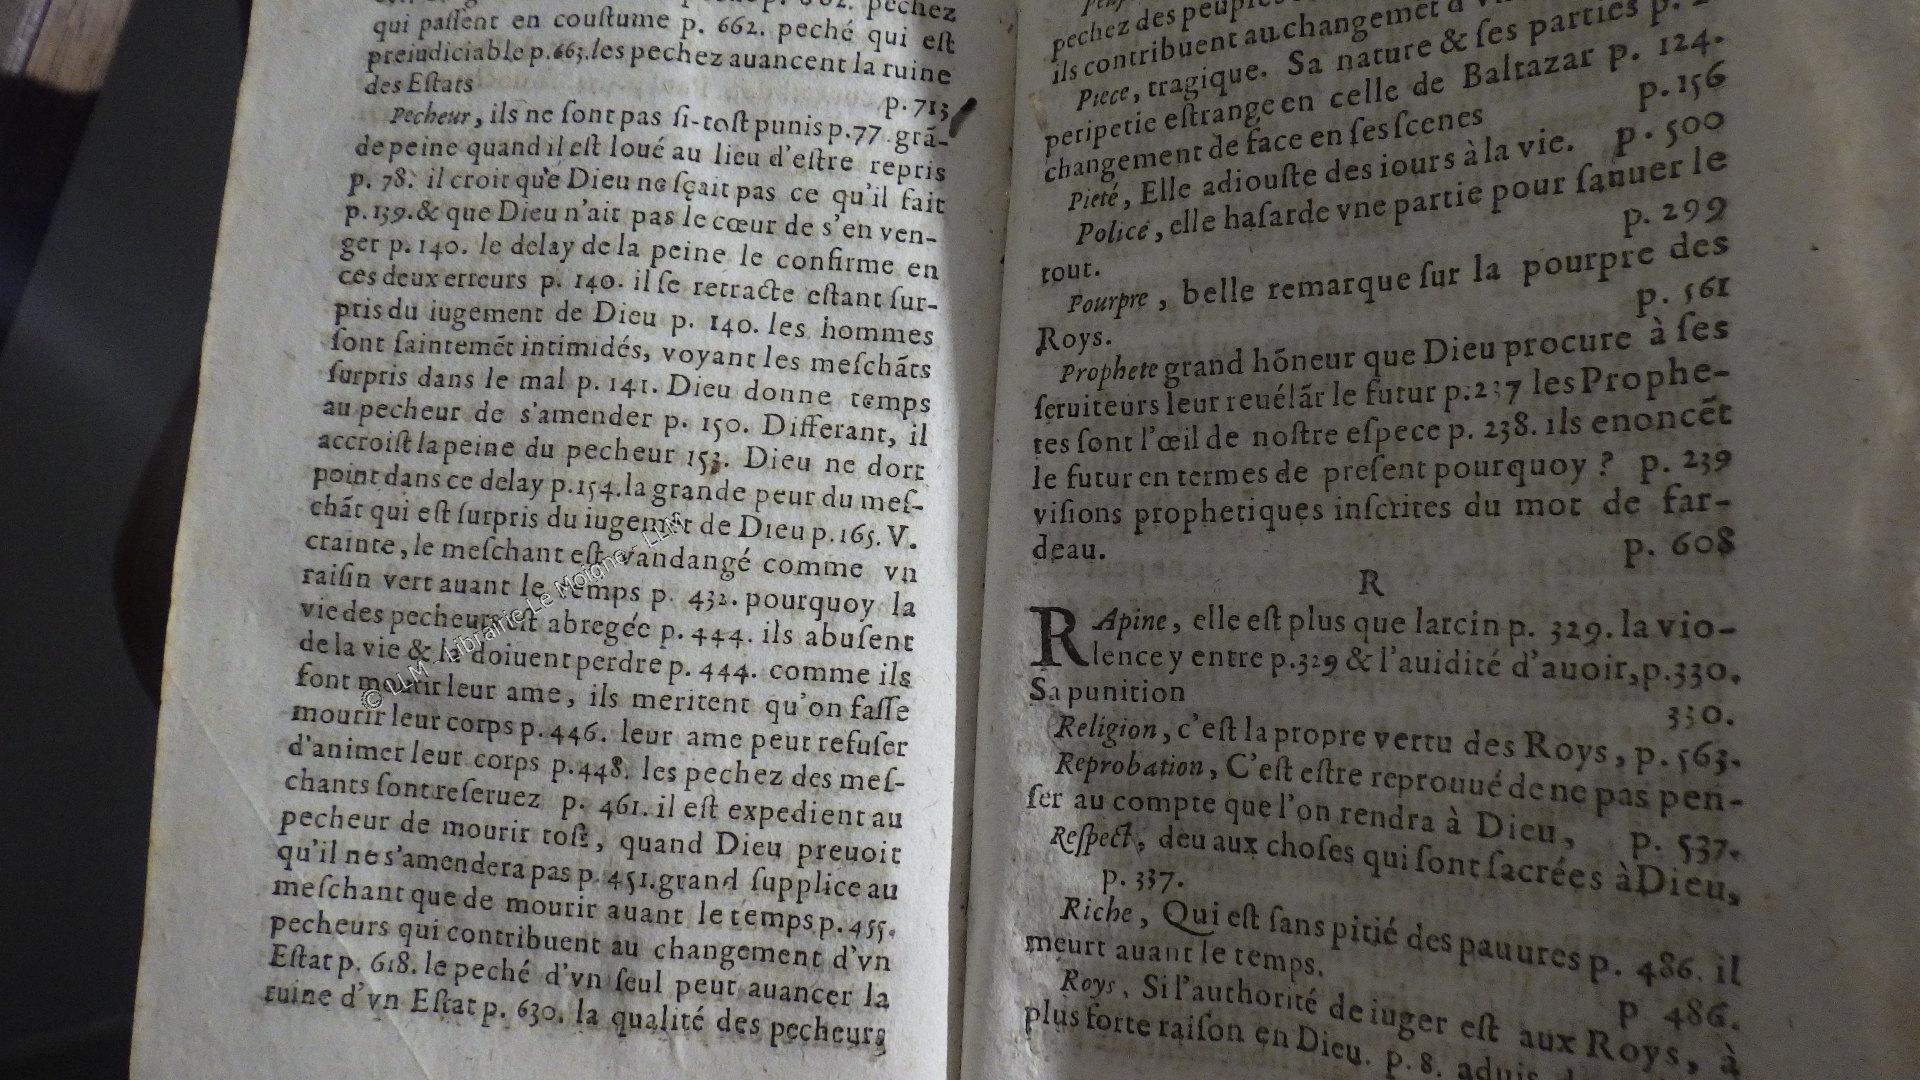 pechez
qui paſſent en couſtume p. 662. peché qui eſt
preiudiciable p. 663. les pechez auancent la ruine
des Eſtats p. 713
Pecheur, ils ne ſont pas ſi-toſt punis p. 77. grã-
de peine quand il eſt loué au lieu d'eſtre repris
p. 78. il croit que Dieu ne ſçait pas ce qu'il fait
p. 139. & que Dieu n'ait pas le cœur de s'en ven-
ger p. 140. le delay de la peine le confirme en
ces deux erreurs p. 140. il ſe retracte eſtant ſur-
pris du iugement de Dieu p. 140. les hommes
ſont ſaintemẽt intimidés, voyant les meſchãts
ſurpris dans le mal p. 141. Dieu donne temps
au pecheur de s'amender p. 150. Differant, il
accroiſt la peine du pecheur 153. Dieu ne dort
point dans ce delay p. 154. la grande peur du meſ-
chãt qui eſt ſurpris du iugemẽt de Dieu p. 165. V.
crainte, le meſchant eſt vandangé comme vn
raiſin vert auant le temps p. 432. pourquoy la
vie des pecheurs eſt abregée p. 444. ils abuſent
de la vie & la doiuent perdre p. 444. comme ils
font mourir leur ame, ils meritent qu'on faſſe
mourir leur corps p. 446. leur ame peut refuſer
d'animer leur corps p. 448. les pechez des meſ-
chants ſont reſeruez p. 461. il eſt expedient au
pecheur de mourir toſt, quand Dieu preuoit
qu'il ne s'amendera pas p. 451. grand ſupplice au
meſchant que de mourir auant le temps p. 455.
pecheurs qui contribuent au changement d'vn
Eſtat p. 618. le peché d'vn ſeul peut auancer la
ruine d'vn Eſtat p. 630. la qualité des pecheurs
pechez des peuples
ils contribuent au changemẽt d'vn
Piece, tragique. Sa nature & ſes parties p.
peripetie eſtrange en celle de Baltazar p. 124.
changement de face en ſes ſcenes p. 156
Pieté, Elle adiouſte des iours à la vie. p. 500
Police, elle haſarde vne partie pour ſauuer le
tout. p. 299
Pourpre, belle remarque ſur la pourpre des
Roys. p. 561
Prophete grand hõneur que Dieu procure à ſes
ſeruiteurs leur reuélãt le futur p. 237 les Prophe-
tes ſont l'œil de noſtre eſpece p. 238. ils enoncẽt
le futur en termes de preſent pourquoy ? p. 239
viſions prophetiques inſcrites du mot de far-
deau. p. 608
R
RApine, elle eſt plus que larcin p. 329. la vio-
lence y entre p. 329 & l'auidité d'auoir, p. 330.
Sa punition 330.
Religion, c'eſt la propre vertu des Roys, p. 563.
Reprobation, C'eſt eſtre reprouué de ne pas pen-
ſer au compte que l'on rendra à Dieu, p. 537.
Reſpect, deu aux choſes qui ſont ſacrées à Dieu,
p. 337.
Riche, Qui eſt ſans pitié des pauures p. 486. il
meurt auant le temps. p 486.
Roys, Si l'authorité de iuger eſt aux Roys, à
plus forte raiſon en Dieu. p. 8. aduis
© LLM - Librairie Le Moigne - LLM